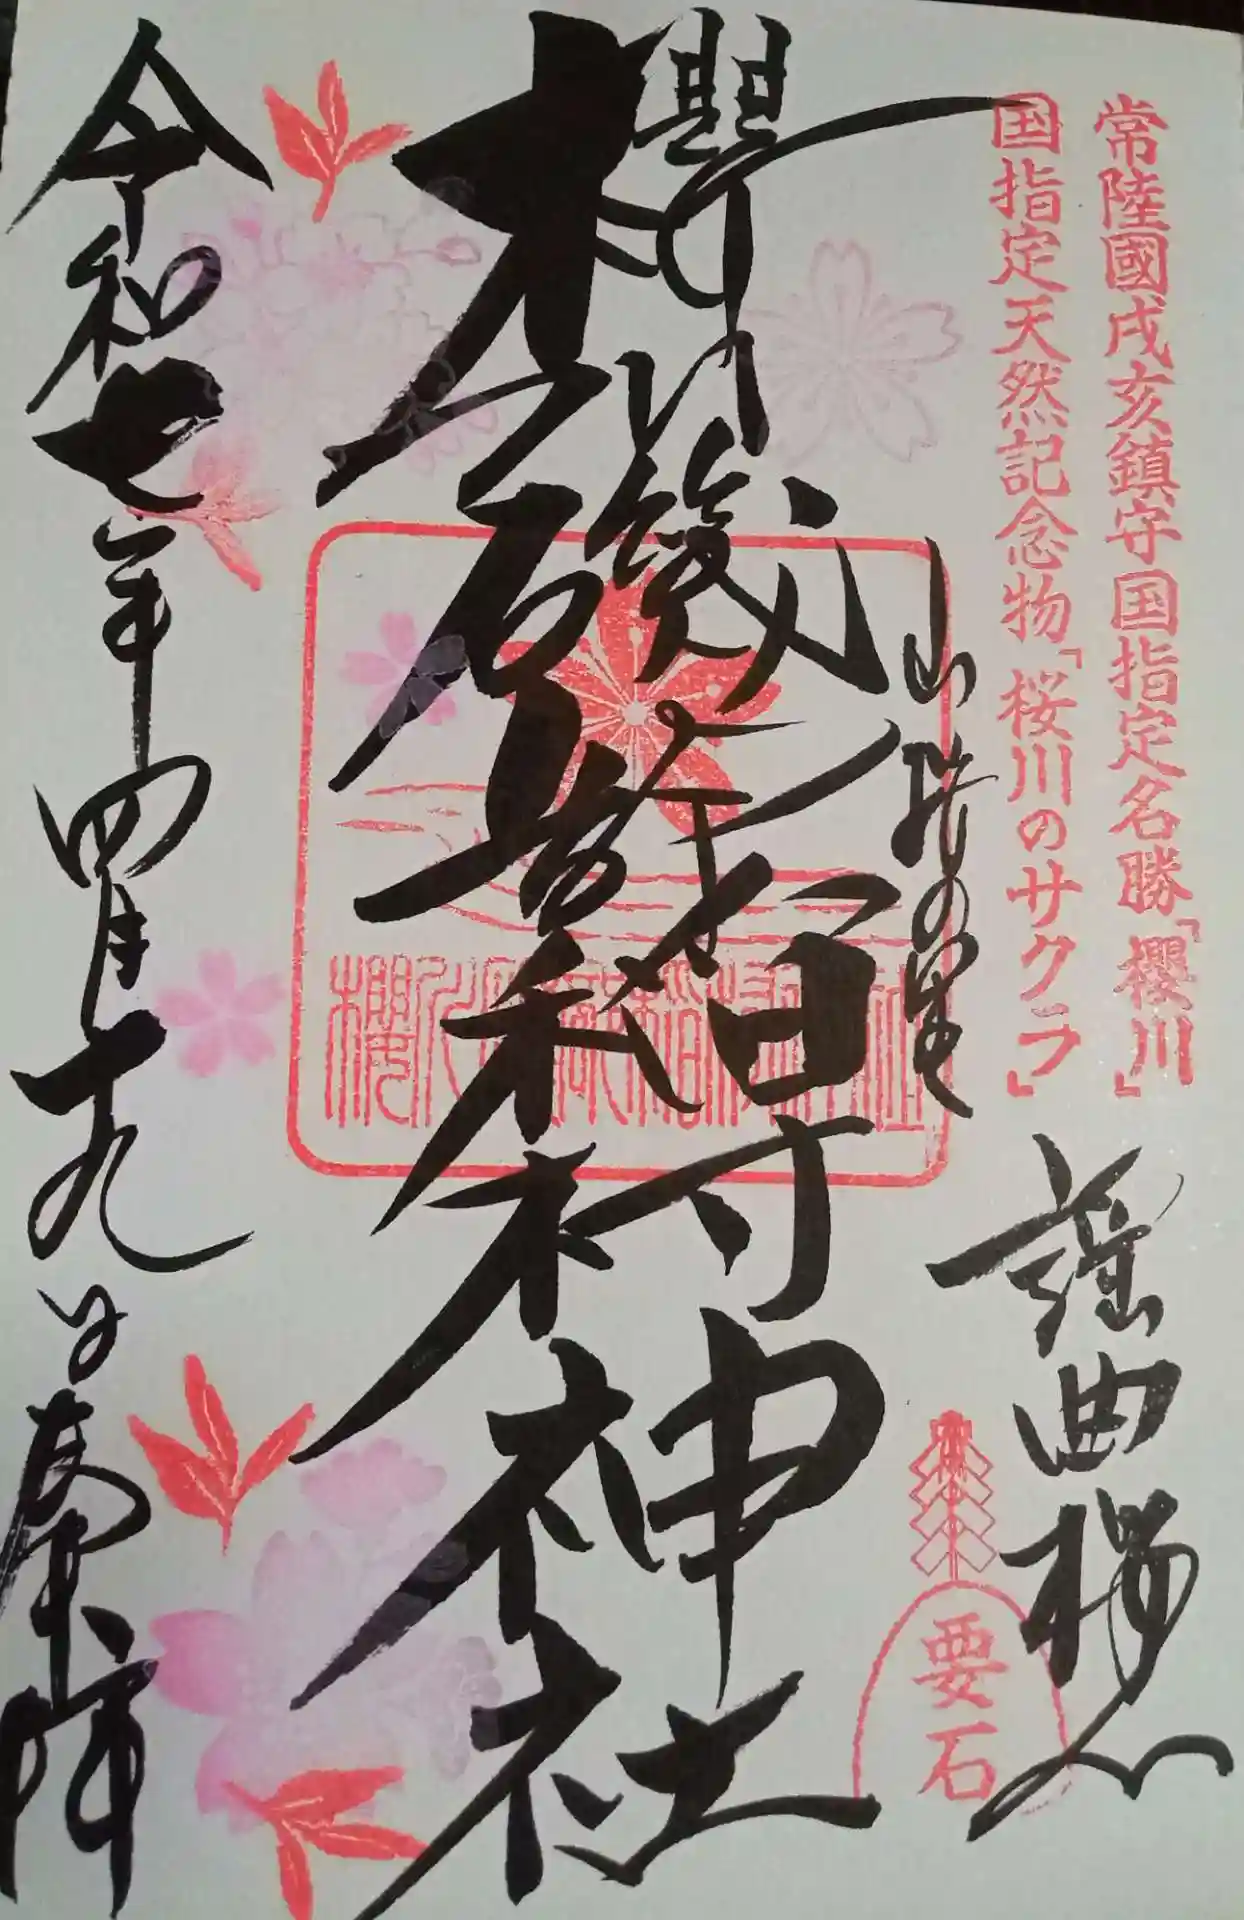 常陸國戌亥鎮守国指定名勝「櫻川」
国指定天然記念物「桜川のサクラ」
謡曲櫻川
要石
山桜の里
櫻川磯部稲村神社
櫻川磯部稲村神社
令和七年四月十九日奉拝